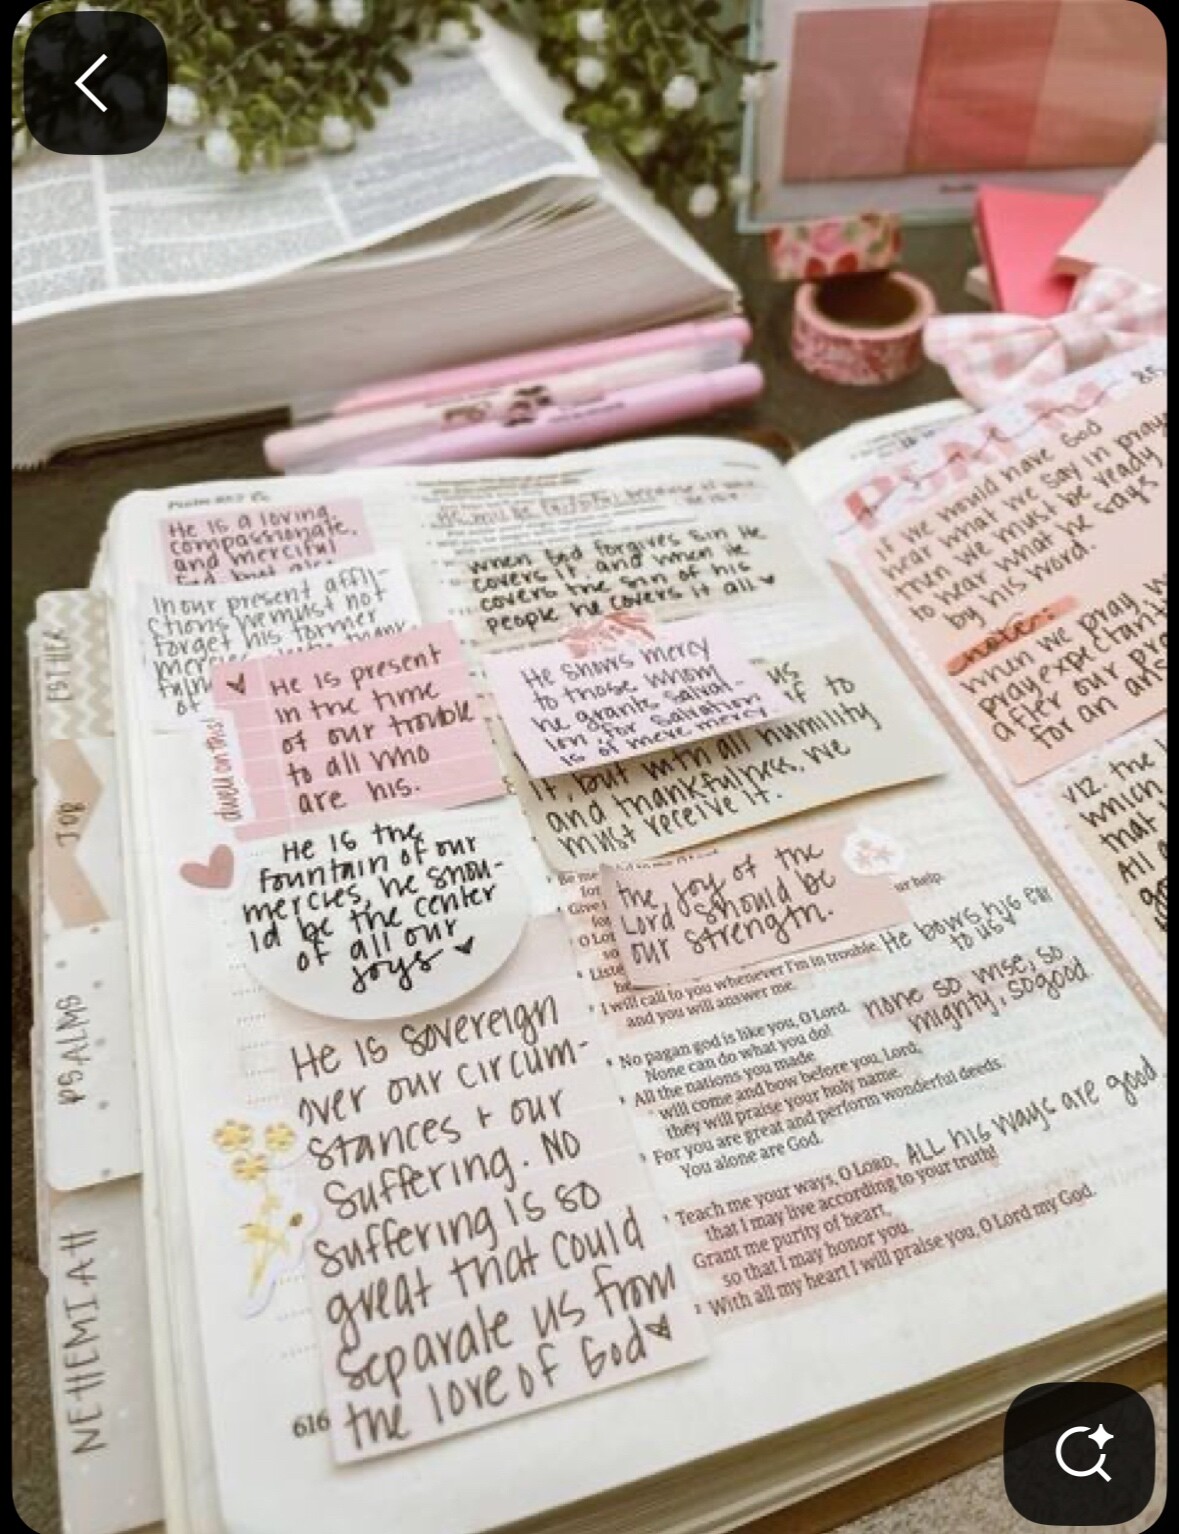 He is a loving,
compassionate,
and merciful
In our present affli-
ctions we must not
forget his former
ESTHER
JOB
PSALMS
NEHEMIAH
dwell on this!
He is present
in the time
of our trouble
to all who
are his.
He is the
fountain of our
mercies, he shou-
ld be the center
of all our
joys
He is sovereign
over our circum-
stances + our
suffering. No
suffering is so
great that could
separate us from
the love of God
616
when God forgives sin He
covers it and when He
covers the sin of his
people he covers it all
He shows mercy
to those whom
he grants salvat-
ion for salvation
is of mere mercy
us
to
it, but with all humility
and thankfulness, we
must receive it.
the joy of the
Lord should be
our strength.
ur help.
I will call to you whenever I'm in trouble
and you will answer me.
He bows his ear
to us
No pagan god is like you, O Lord.
None can do what you do!
none so wise, so
mighty, so good
All the nations you made
will come and bow before you, Lord;
they will praise your holy name.
For you are great and perform wonderful deeds.
You alone are God.
Teach me your ways, O LORD,
ALL his ways are good
that I may live according to your truth!
Grant me purity of heart,
so that I may honor you.
With all my heart I will praise you, O Lord my God.
PSALM
85
if we would have God
hear what we say in pray
then we must be ready
to hear what he says
by his word.
note:
when we pray, w
pray expectantl
after our pra
for an ans
viz. the
which
that
All